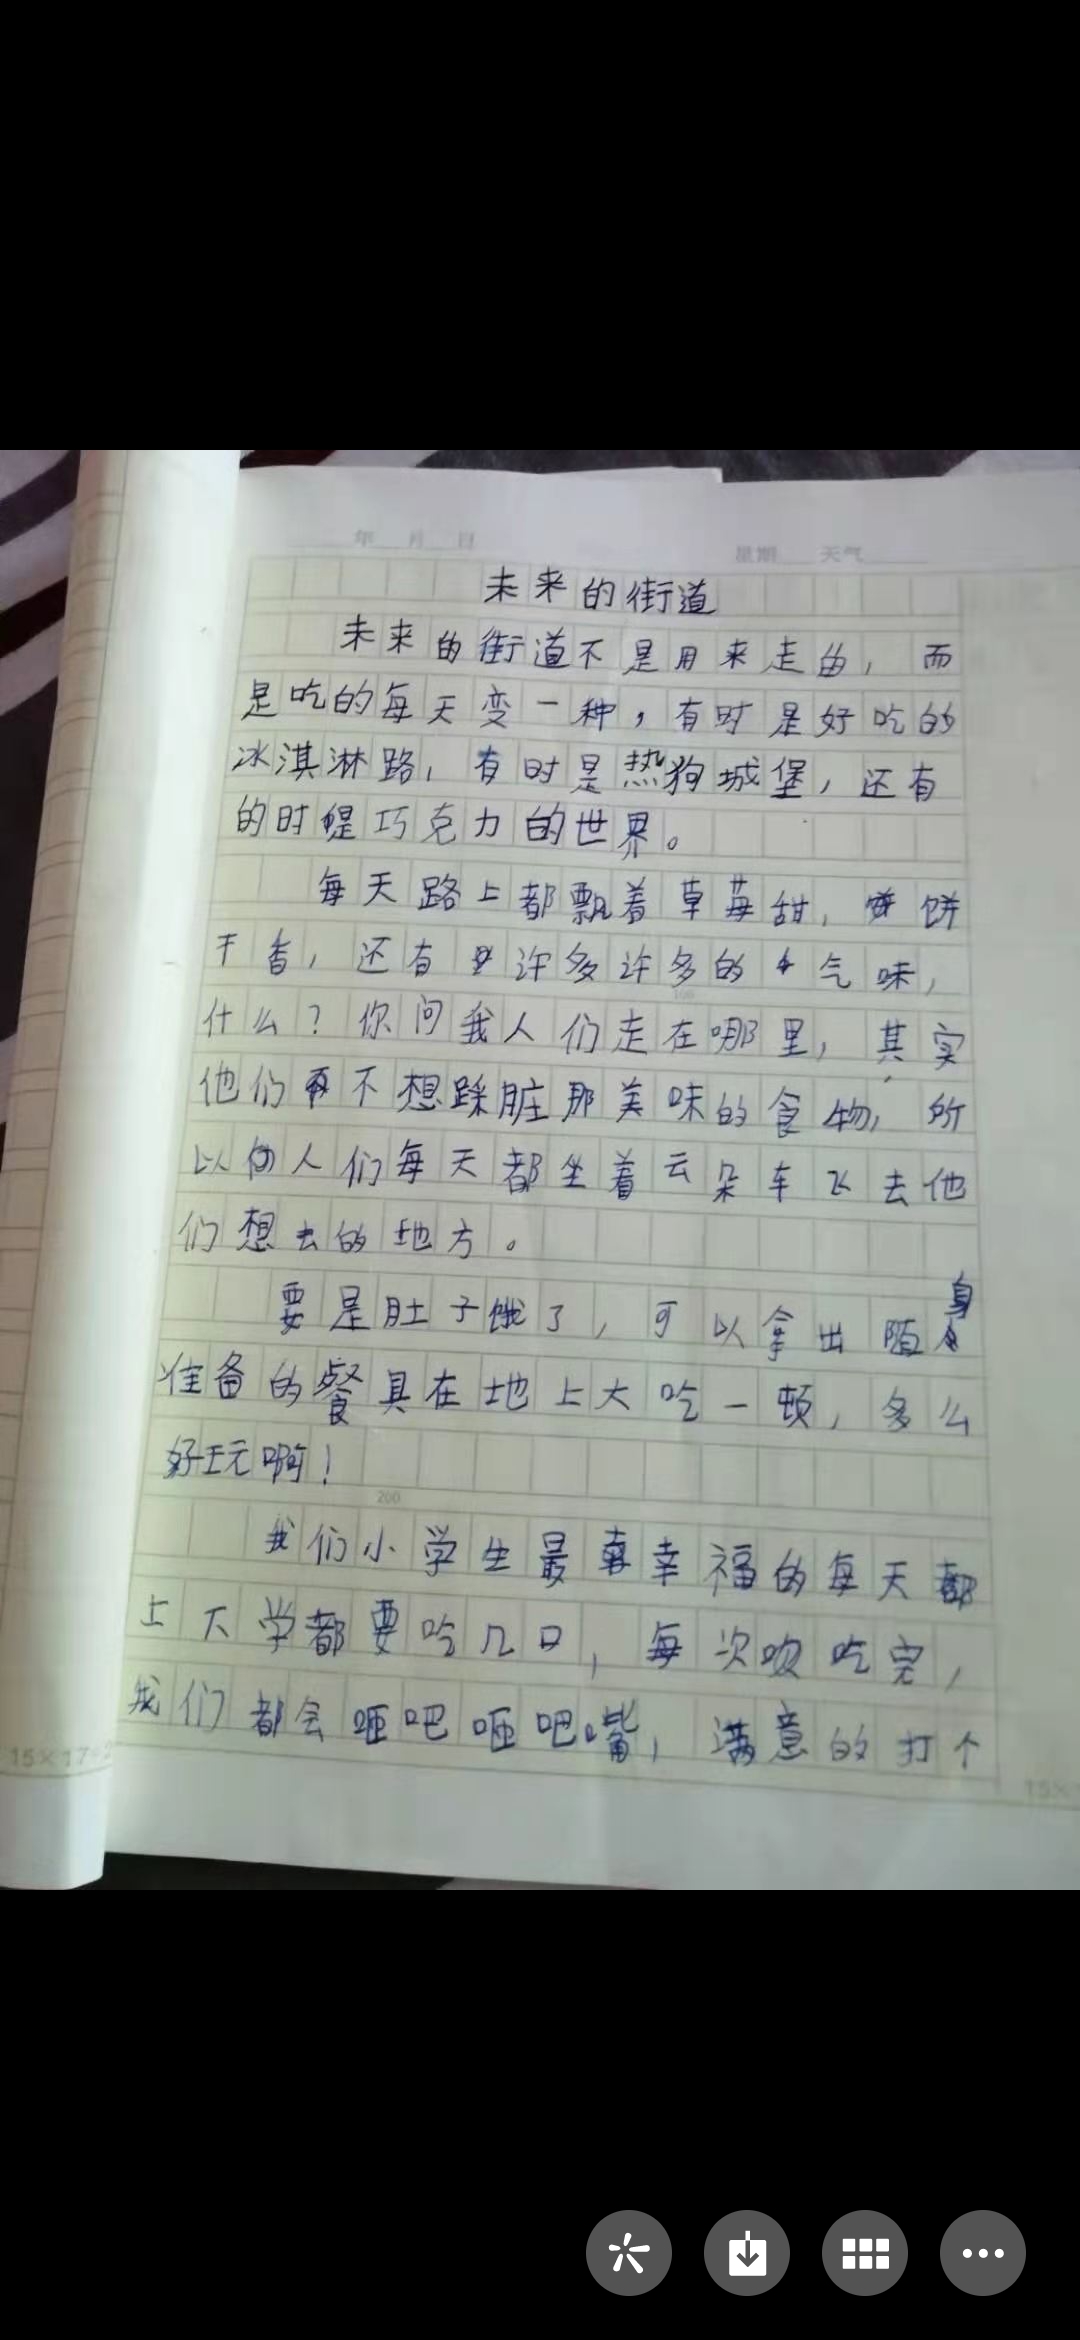 年 月 日
星期 天气
未来的街道
未来的街道不是用来走的，而
是吃的每天变一种，有时是好吃的
冰淇淋路，有时是热狗城堡，还有
的时候是巧克力的世界。
每天路上都飘着草莓甜，饼
干香，还有许多许多的气味，
100
什么？你问我人们走在哪里，其实
他们不想踩脏那美味的食物，所
以人们每天都坐着云朵车飞去他
们想去的地方。
要是肚子饿了，可以拿出随身
准备的餐具在地上大吃一顿，多么
好玩啊！
200
我们小学生最幸福的每天都
上下学都要吃几口，每次吃完，
我们都会咂吧咂吧嘴，满意的打个
15×17=2
15×1